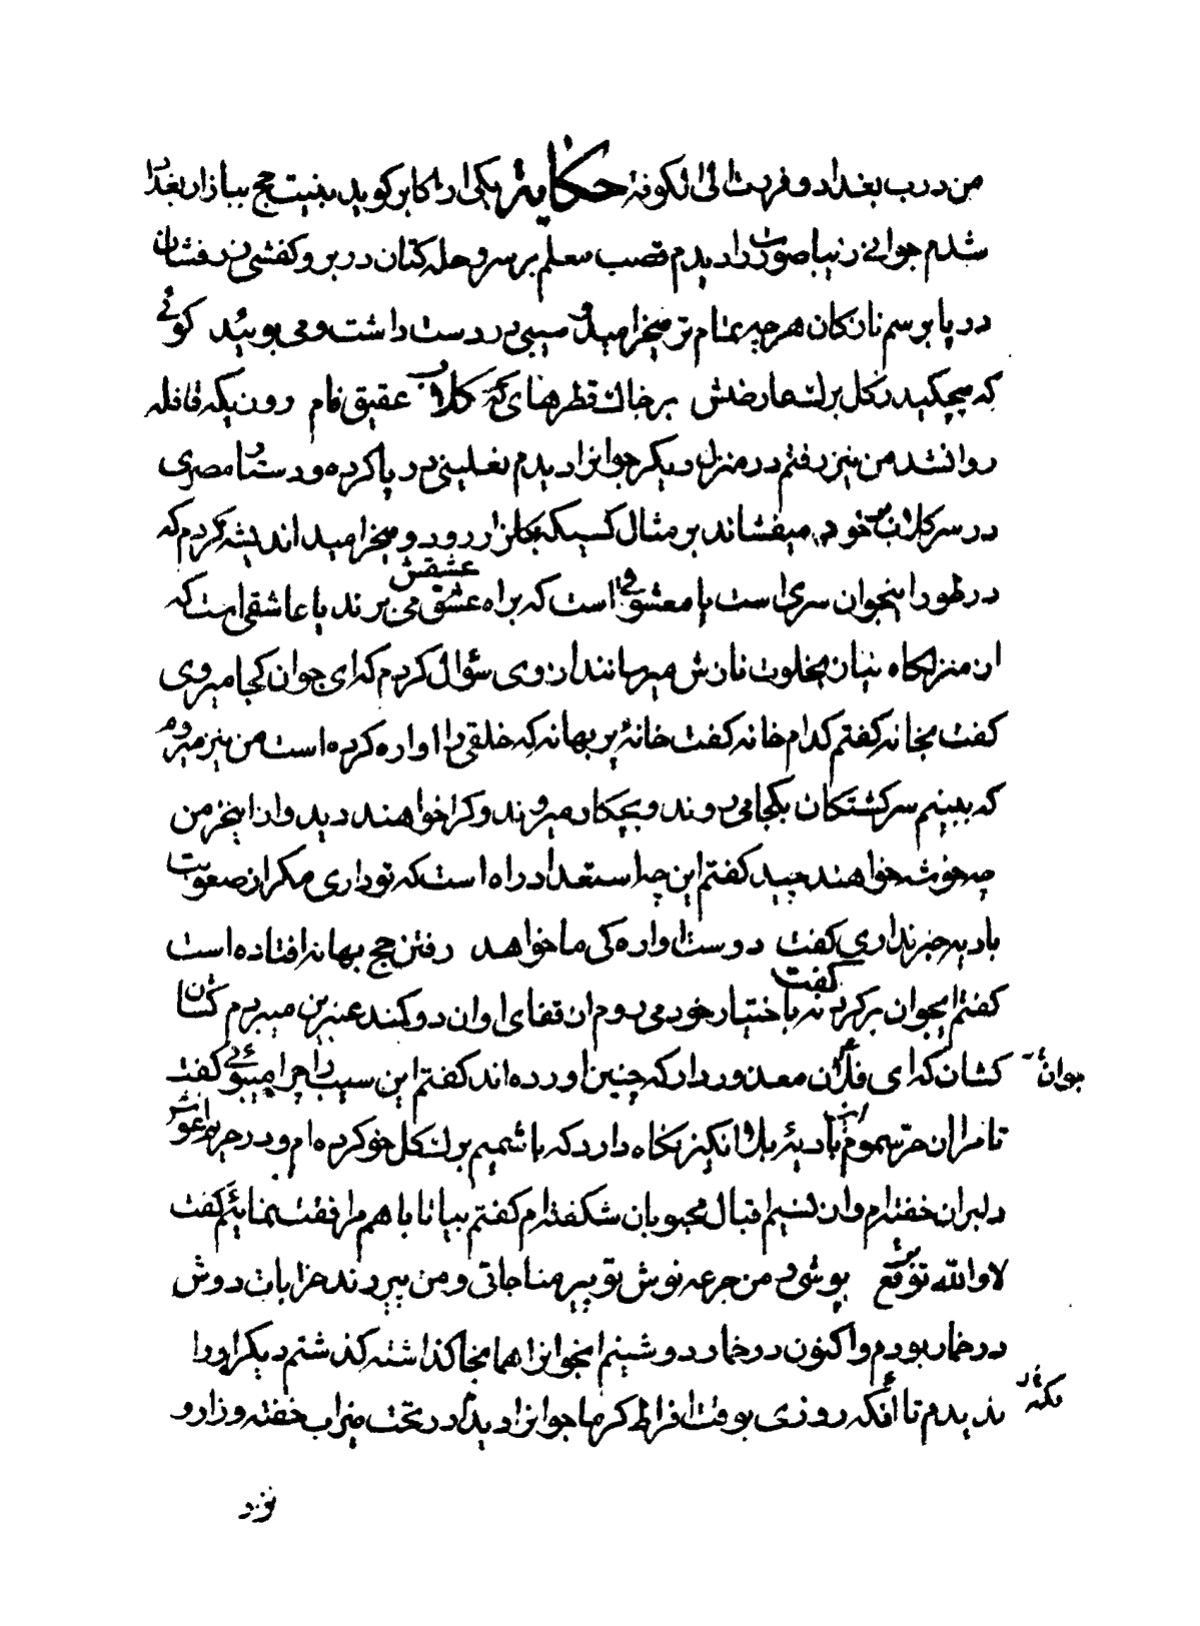 من درب بغداد و فرت الی الکوفة حکایة یکی از اکابر کوید بنیت حج ببازار بغداد
شدم جوانی زیبا صورت را دیدم قصب معلم بر سر و حله کتان در بر و کفشی زرفشان
در پا برسم نازکان هر چه تمام تر میخرامید و سیبی در دست داشت و می بوئید کوئی
که میچکید ز کل برک عارضش بر خاک قطرهای که کلاب عقیق فام روزیکه قافله
روانشد من نیز رفتم در منزل دیکر جوانرا دیدم نعلینی در پا کرده و دستار مصری
در سر کلاب بر خود میفشاند بر مثال کسیکه بکلزار رود و میخرامید اندیشه کردم که
در طور اینجوان سری است یا معشوقی است که براه عشق می برند یا عاشقی است که
عشقش
از منزلکاه نیاز بخلوت نازش میرسانند از وی سؤال کردم که ای جوان کجا میروی
کفت بخانه کفتم کدام خانه کفت خانهٔ پر بهانه که خلقی را اواره کرده است من نیز میروم
که ببینم سرکشتکان بکجا می روند و بچکار میروند و کرا خواهند دید و از اینخرمن
چه خوشه خواهند چید کفتم این چه استعداد راه است که تو داری مکر از صعوبت
بادیه خبر نداری کفت دوست اواره کی ما خواهد رفتن حج بهانه افتاده است
کفتم ایجوان برکرد کفت نه باختیار خود می روم از قفای او ان دو کمند عنبرین میبردم کشان
کشان که ای فلان معذور دار که چنین اورده اند کفتم این سیب را چرا میبوئی کفت
بوانی
تا مرا از حر سموم این بادیهٔ بلا انکیز نکاه دارد که با شمیم برک کل خو کرده ام و در حریم اغوش
دلبران خفته ام و از نسیم اقبال محبوبان شکفته ام کفتم بیا تا با هم مرافقت نمائیم کفت
لا والله توقع پوشی من جرعه نوش تو پیر مناجاتی و من پیر رند خرابات دوش
در خمار بودم و اکنون در خمار دوشینم اینجوانرا همانجا کذاشته کذشتم دیکر اورا
ندیدم تا انکه روزی بوقت افراط کرما جوانرا دیدم در تحت میزاب خفته و زار و
نزد